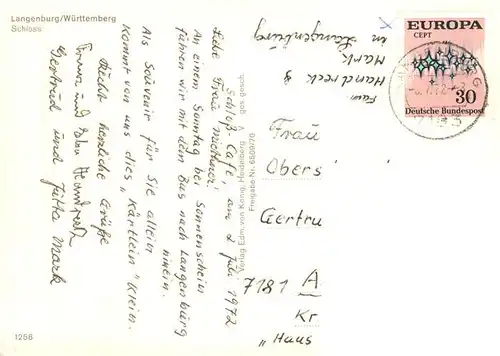 Langenburg/Württemberg
Schloss
Schloß-Café, am 2 Juli 1972
Liebe Frau
An einem Sonntag bei Sonnenschein
führen wir mit dem Bus nach Langenburg
hinein.
Als Souvenir für Sie allein
kommt von uns dies "Kärtlein" klein.
Recht herzliche Grüße
Gertrud und Jutta Mark
ges. gesch.
Verlag Edm. von König, Heidelberg
Freigabe-Nr. 6509/70
Fam
Handreck &
Mark
in Langenburg
EUROPA
CEPT
30
Deutsche Bundespost
Frau
Obers
Gertru
7181 A
Kr
"Haus
1256